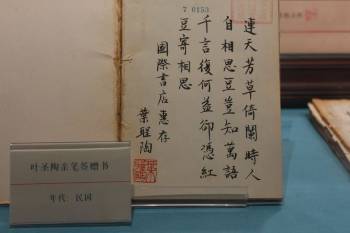 7 0153
連天芳草倚闌時人
自相思豆豈知萬語
千言復何益卻憑紅
豆寄相思
國際書店惠存
葉聖陶
叶圣陶亲笔签赠书
年代:民国